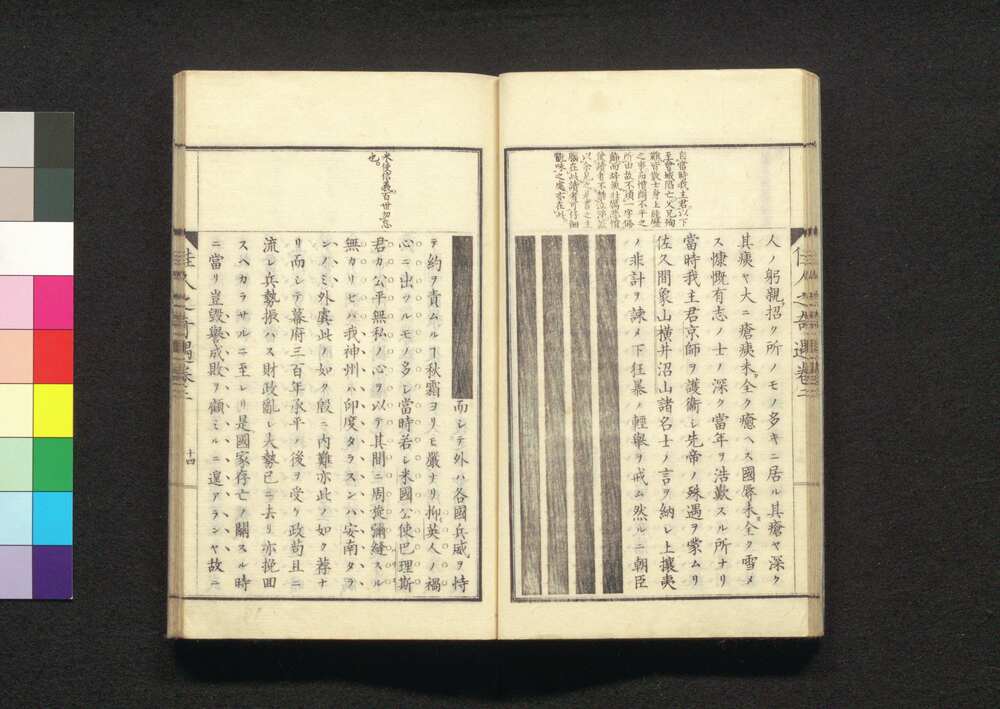 自當時我主君以下
至曾城陷亡父兄殉
難皆敍士身上經歷
之事而憤悶不平之
所由故不須一字修
飾
佳人之奇遇卷二
人ノ躬親招ク所ノモノ多キニ居ル其瘡ヤ深ク
其痍ヤ大ニ瘡痍未全ク癒ヘス國辱未全ク雪メ
ス慷慨有志ノ士ノ深ク當年ヲ浩歎スル所ナリ
當時我主君京師ヲ護衞シ先帝ノ殊遇ヲ蒙ムリ
佐久間象山横井沼山諸名士ノ言ヲ納レ上攘夷
ノ非計ヲ諫メ下狂暴ノ輕舉ヲ戒ム然ルニ朝臣
米使信義百世勿忘
也
而シテ外ハ各國兵威ヲ恃
テ約ヲ責ムルヿ秋霜ヨリモ嚴ナリ抑英人ノ禍
心ニ出ツルモノ多シ當時若シ米國公使巴理斯
君カ公平無私ノ心ヲ以テ其間ニ周旋彌縫スル
無カリセハ我神州ハ印度タラスンハ安南タラ
ンノミ外虞此ノ如ク殷ニ内難亦此ノ如ク荐ナ
リ而シテ幕府三百年承平ノ後ヲ受ケ政苟且ニ
流レ兵勢振ハス財政亂レ大勢已ニ去リ亦挽回
スヘカラサルニ至レリ是國家存亡ノ關スル時
ニ當リ豈毀譽成敗ヲ顧ミルニ遑アランヤ故ニ
佳人之奇遇卷二
十四